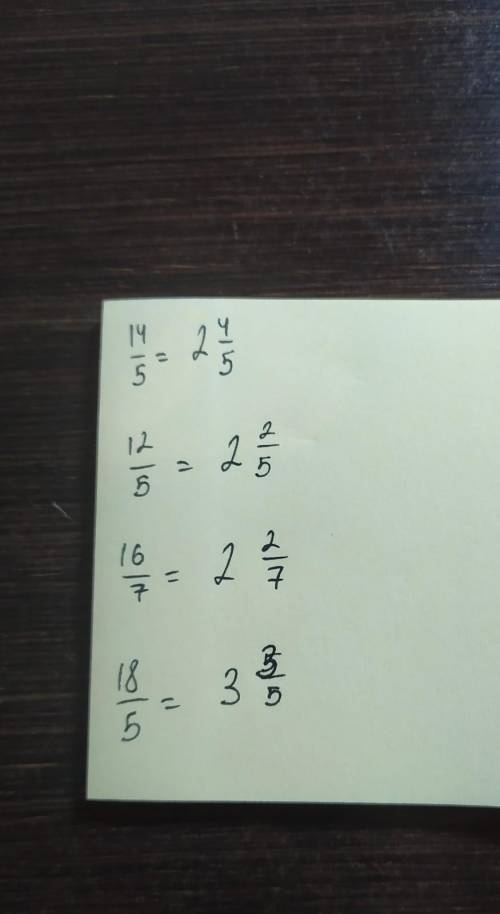 14/5 = 2 4/5
12/5 = 2 2/5
16/7 = 2 2/7
18/5 = 3 3/5